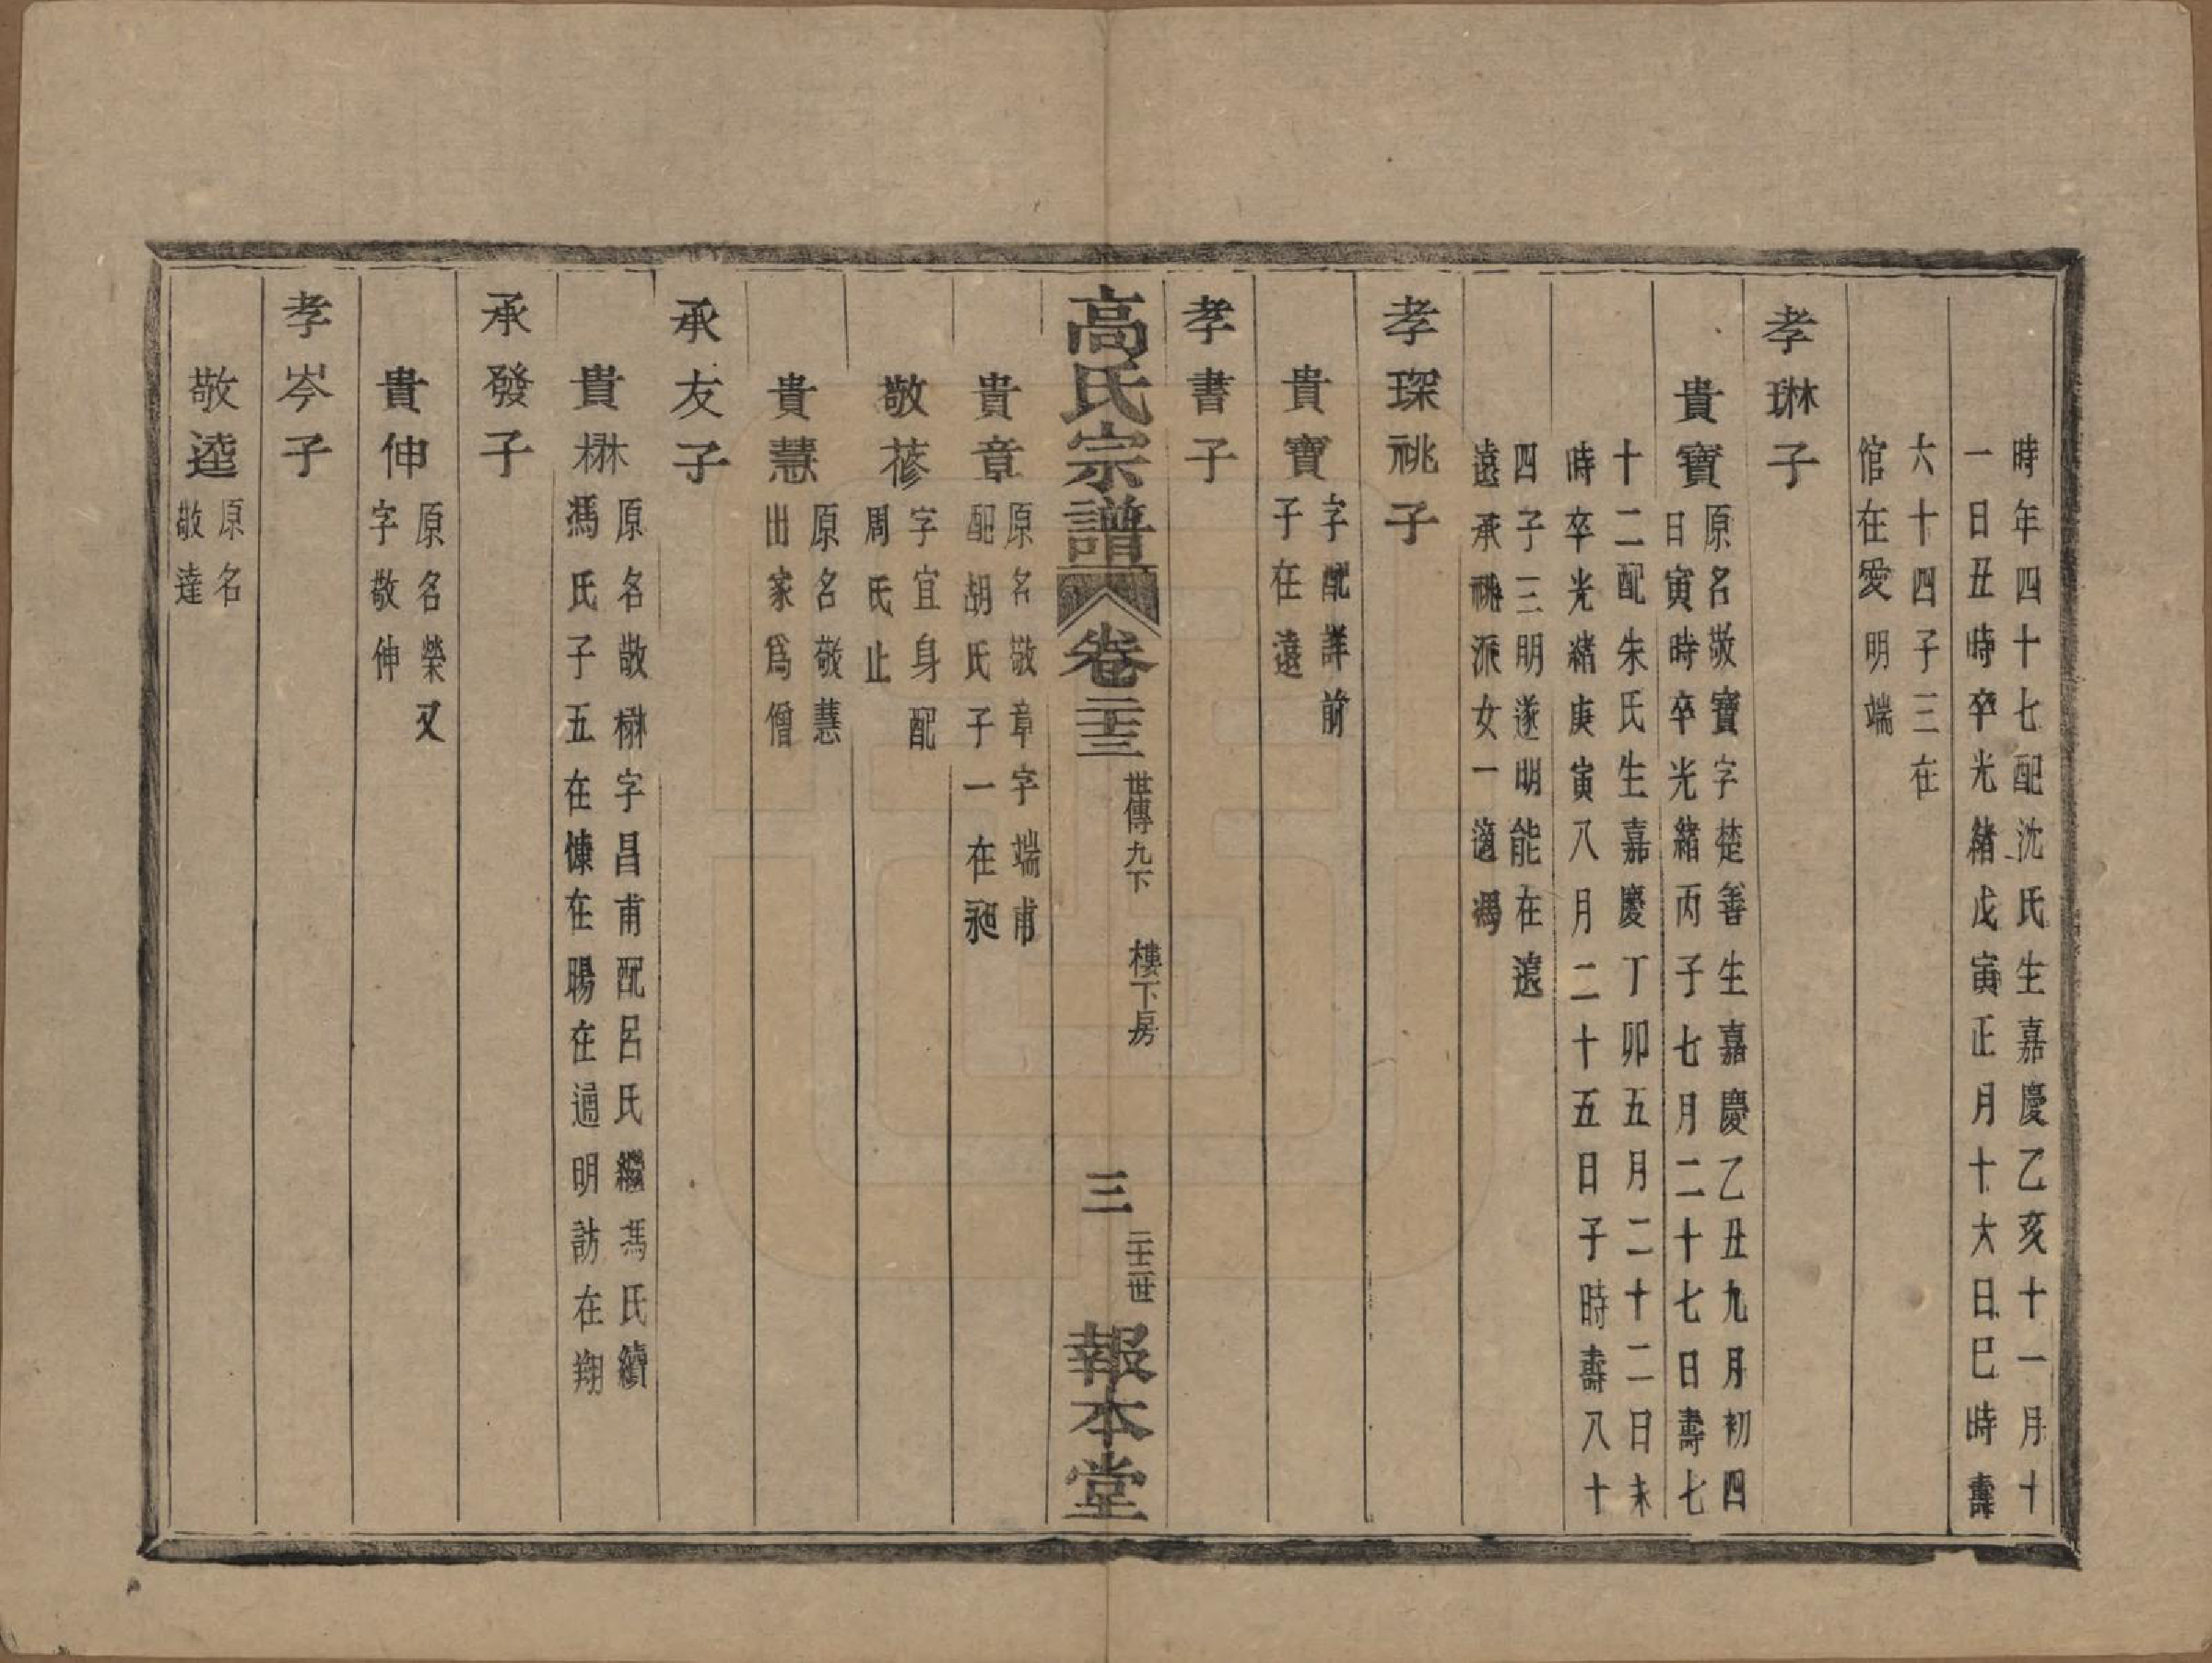 時年四十七配沈氏生嘉慶乙亥十一月十
一日丑時卒光緒戊寅正月十六日巳時壽
六十四子三在
倌在愛明端
孝琳子
貴寶
原名敬寶字楚善生嘉慶乙丑九月初四
日寅時卒光緒丙子七月二十七日壽七
十二配朱氏生嘉慶丁卯五月二十二日未
時卒光緒庚寅八月二十五日子時壽八十
四子三明遂明能在遠
遠承祧派女一適馮
孝琛祧子
貴寶
字配詳前
子在遠
孝書子
高氏宗譜
卷二十三
世傳九下
樓下房
三
二十二世
報本堂
貴章
原名敬章字端甫
配胡氏子一在昶
敬蓚
字宜身配
周氏止
貴慧
原名敬慧
出家爲僧
承友子
貴楙
原名敬楙字昌甫配呂氏繼馮氏續
馮氏子五在慷在暘在過明訪在翔
承發子
貴伸
原名榮又
字敬伸
孝岑子
敬逵
原名
敬達